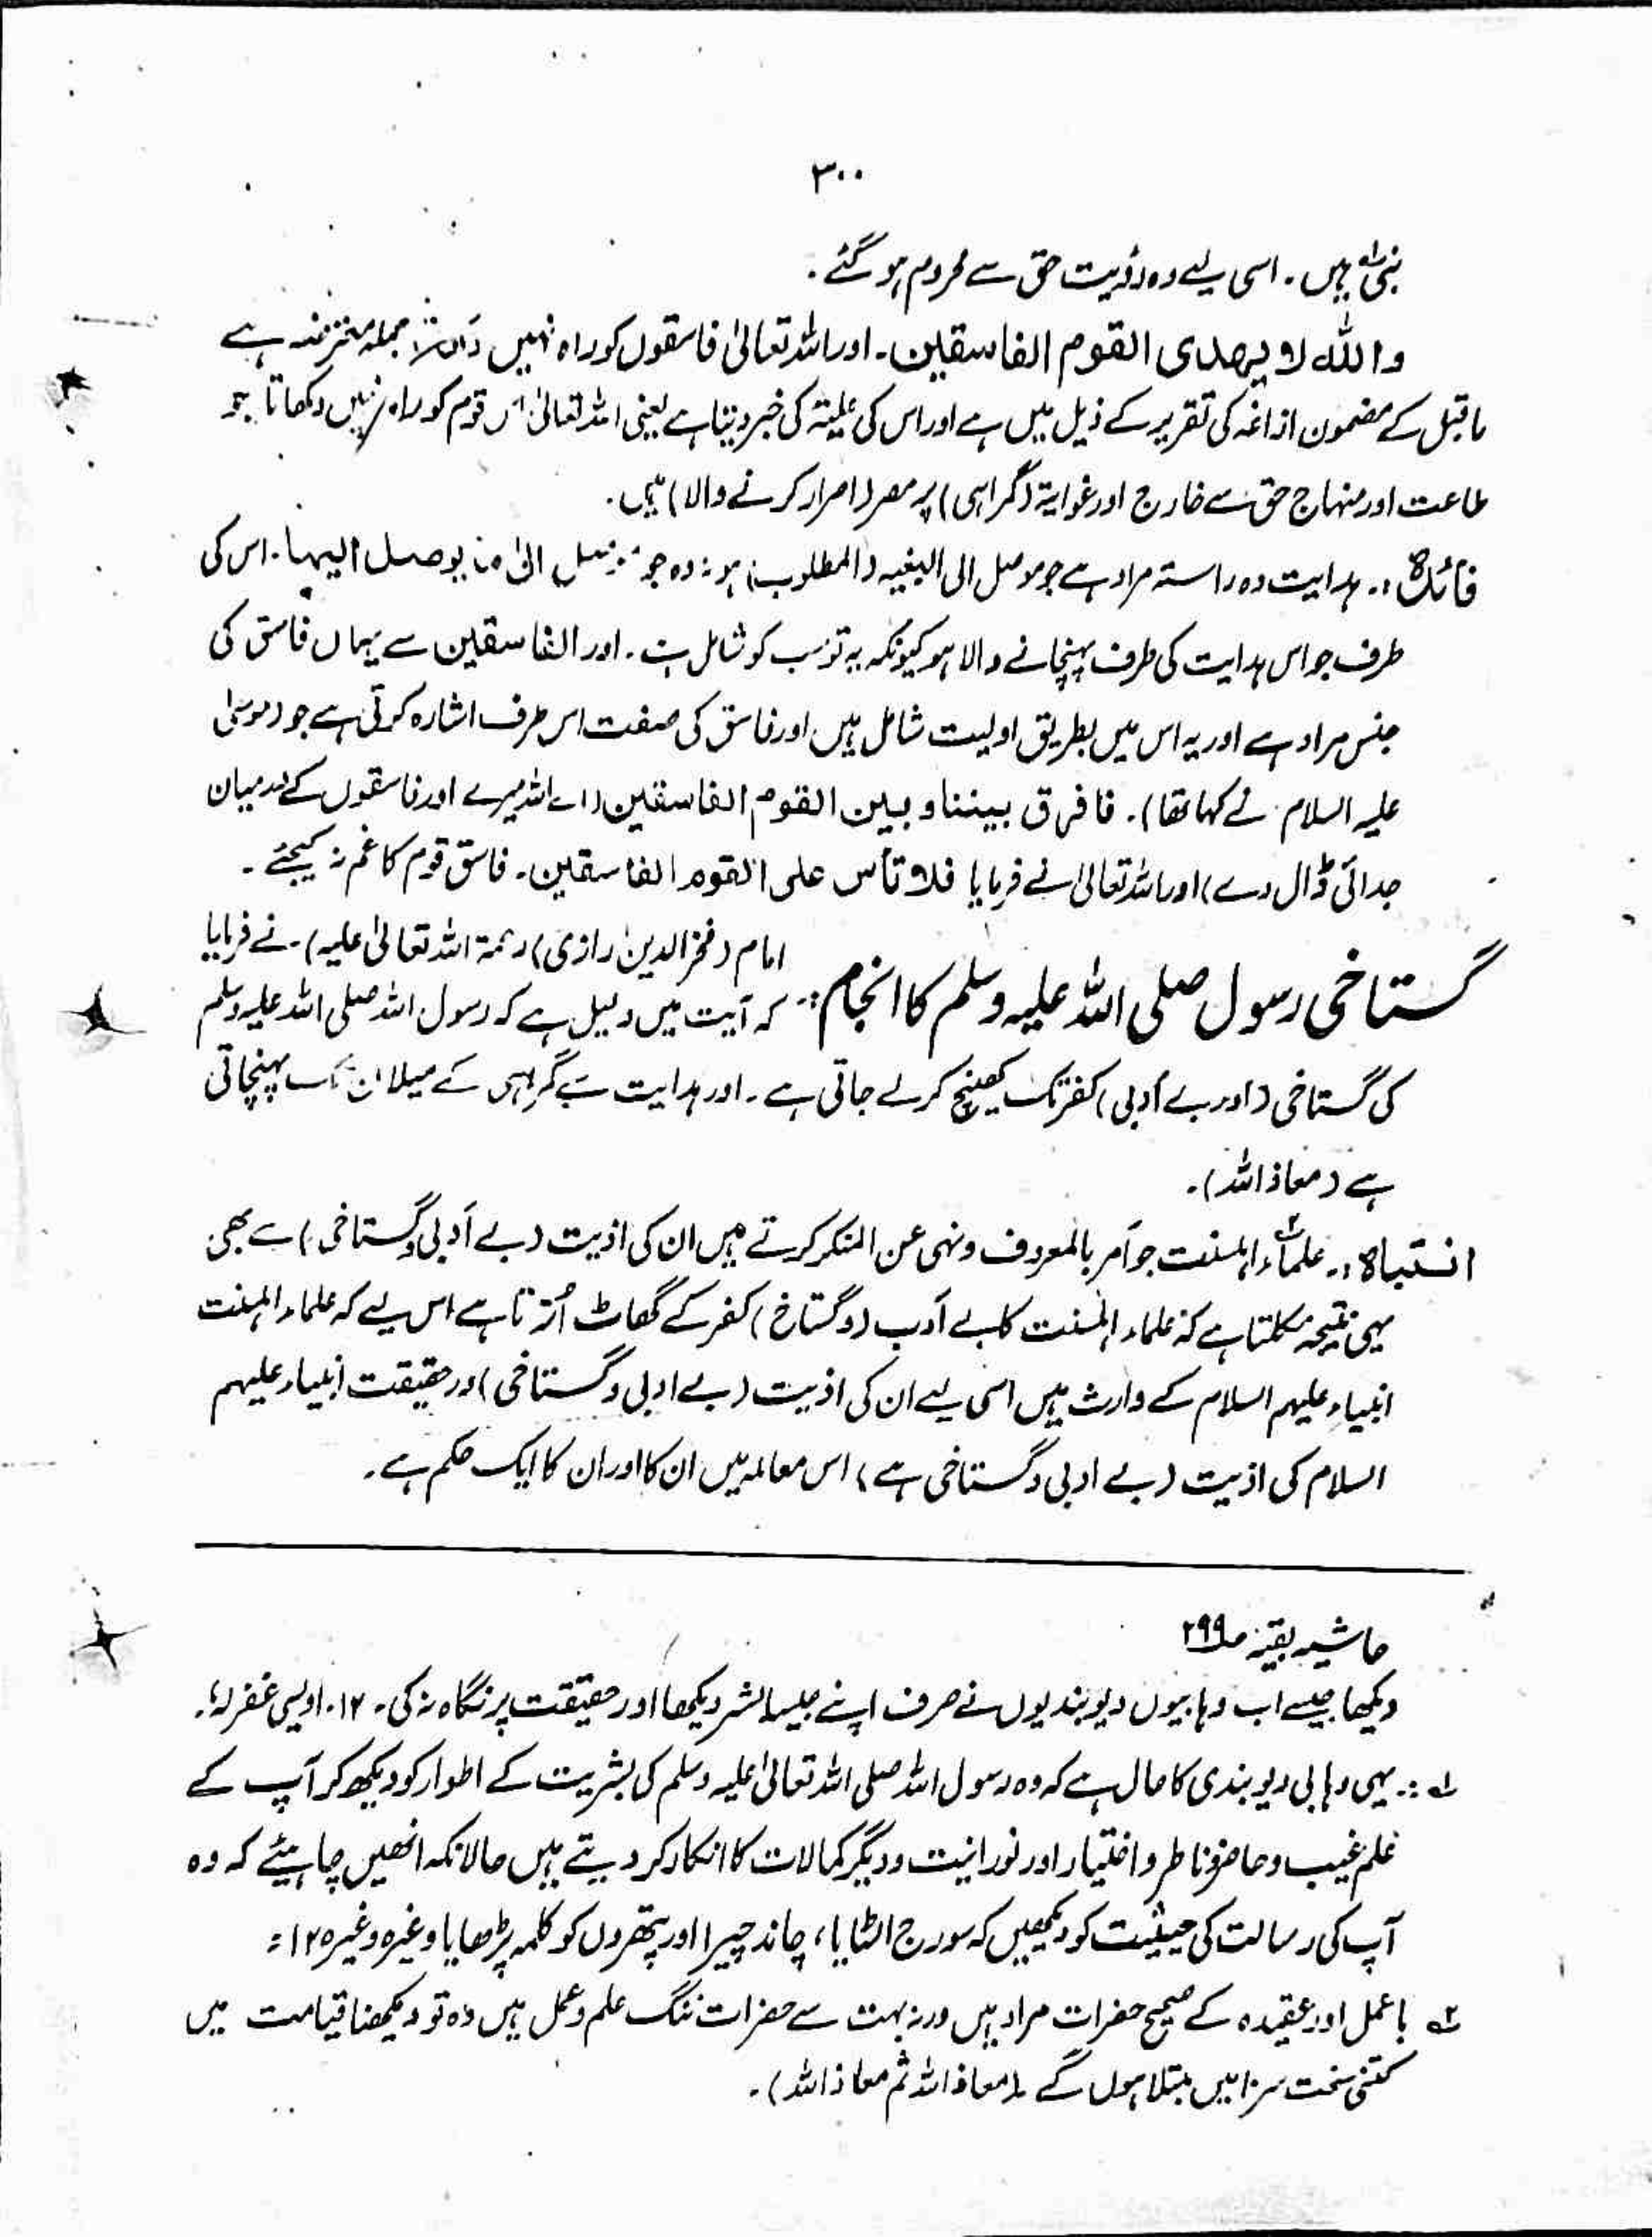 ۳۰۰
نبی ہیں۔ اسی لیے وہ رؤیت حق سے محروم ہو گئے۔
واللہ لا یھدی القوم الفاسقین۔ اور اللہ تعالیٰ فاسقوں کو راہ نہیں جملہ معترضہ ہے
ماقبل کے مضمون ازاغہ کی تقریر کے ذیل میں ہے اور اس کی علیۃ کی خبر دیتا ہے یعنی اللہ تعالیٰ اس قوم کو راہ نہیں دکھاتا جو
طاعت اور منہاج حق سے خارج اور غوایۃ (گمراہی) پر مصر (اصرار کرنے والا) ہیں۔
فائدہ :۔ ہدایت وہ راستہ مراد ہے جو موصل الی البغیہ (المطلوب) ہو نہ وہ جو الیٰ ما یوصل الیہا۔ اس کی
طرف جو اس ہدایت کی طرف پہنچانے والا ہو کیونکہ یہ تو سب کو شامل ہے۔ اور الفاسقین سے یہاں فاسق کی
جنس مراد ہے اور یہ اس میں بطریق اولیت شامل ہیں اور فاسق کی صفت اس طرف اشارہ کرتی ہے جو (موسیٰ
علیہ السلام نے کہا تھا)۔ فافرق بیننا و بین القوم الفاسقین (اے اللہ میرے اور فاسقوں کے درمیان
جدائی ڈال دے) اور اللہ تعالیٰ نے فرمایا فلا تأس علی القوم الفاسقین۔ فاسق قوم کا غم نہ کیجئے۔
گستاخی رسول صلی اللہ علیہ وسلم کا انجام :۔ امام (فخر الدین رازی) (رحمۃ اللہ تعالیٰ علیہ)۔ نے فرمایا
کہ آیت میں دلیل ہے کہ رسول اللہ صلی اللہ علیہ وسلم
کی گستاخی (اور بے أدبی) کفر تک کھینچ کر لے جاتی ہے۔ اور ہدایت سے گمراہی کے میلان تک پہنچاتی
ہے (معاذ اللہ)۔
انتباہ :۔ علماء۲ اہلسنت جو أمر بالمعروف و نہی عن المنکر کرتے ہیں ان کی اذیت (بے أدبی و گستاخی) سے بھی
یہی نتیجہ نکلتا ہے کہ علماء اہلسنت کا بے أدب (و گستاخ) کفر کے گھاٹ اُترتا ہے اس لیے کہ علماء اہلسنت
انبیاء علیہم السلام کے وارث ہیں اسی لیے ان کی اذیت (بے ادبی و گستاخی) درحقیقت انبیاء علیہم
السلام کی اذیت (بے ادبی و گستاخی ہے) اس معاملہ میں ان کا اور ان کا ایک حکم ہے۔
حاشیہ بقیہ ص۲۹۹
دیکھا جیسے اب وہابیوں دیوبندیوں نے صرف اپنے جیسا بشر دیکھا اور حقیقت پر نگاہ نہ کی۔ ۱۲۔ اویسی غفرلہ؛۔
۱؎ :۔ یہی وہابی دیوبندی کا حال ہے کہ وہ رسول اللہ صلی اللہ تعالیٰ علیہ وسلم کی بشریت کے اطوار کو دیکھ کر آپ کے
علم غیب و حاضر و ناظر و اختیار اور نورانیت و دیگر کمالات کا انکار کر دیتے ہیں حالانکہ انھیں چاہیئے کہ وہ
آپ کی رسالت کی حیثیت کو دیکھیں کہ سورج الٹایا، چاند چیرا اور پتھروں کو کلمہ پڑھایا وغیرہ وغیرہ ۱۲ :
۲؎ باعمل اور عقیدہ کے صحیح حضرات مراد ہیں ورنہ بہت سے حضرات ننگ علم و عمل ہیں وہ تو دیکھنا قیامت میں
کتنی سخت سزا میں مبتلا ہوں گے۔ (معاذ اللہ ثم معاذ اللہ)۔